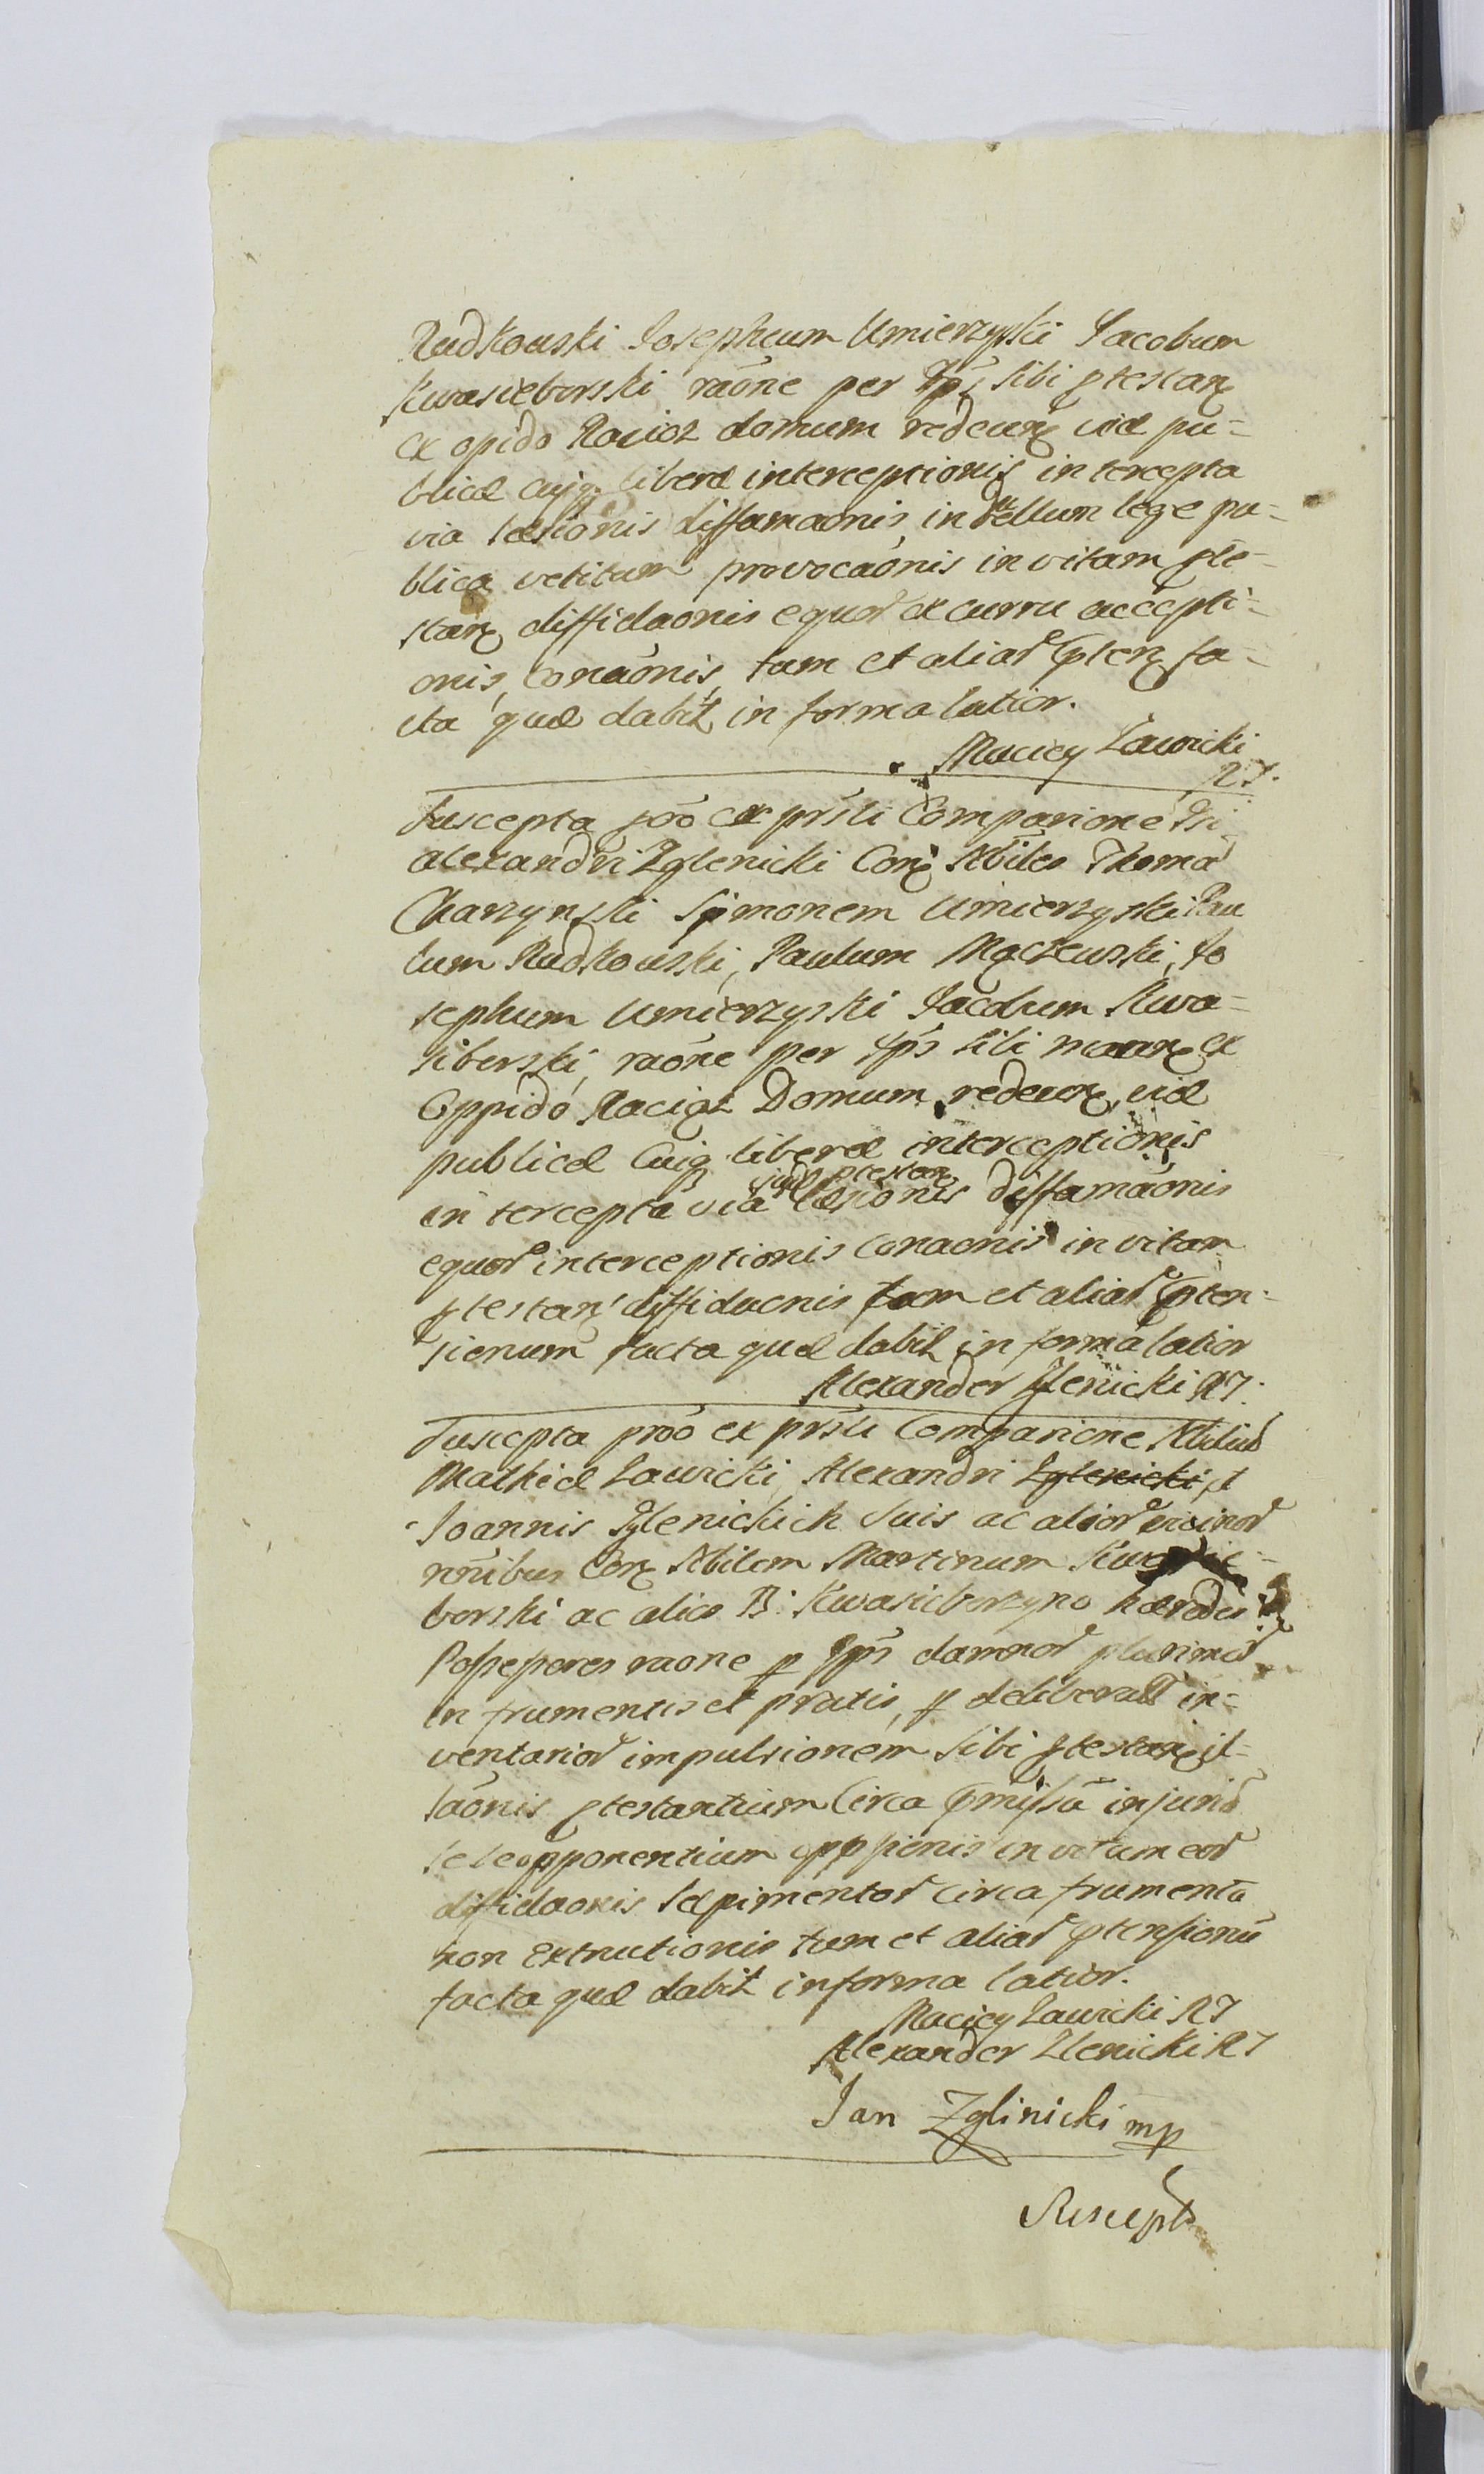 Rudkouski Josephum Umierzyski Jacobum
Kwasieborski raõne per Ips sibi ptestan
ex opido Raciąz domum redeun viæ pu=
blicæ cuiq. liberæ interceptionis intercepta
via læsionis diffamaonis, in duellum lege pu=
blica vetitum provocaõnis in vitam pte=
stan diffidaonis equor ex curru accepti=
onis, Conaõnis, tum et aliar pten fa=
cta quæ dabit in forma latior.
Maciey Lawicki
RJ.
Suscepta prõ ex prsti Comparione Dsi
alexandri Zglenicki Con Nbiles Thoma
Charzynski Symonem Umierzyski Pau
lum Rudkouski, Paulum Mączewski, Jo
sephum Umierzyski Jacobum Kwa=
siborski, raõne per Ips sibi ex
Oppido Raciąz Domum redeun, viæ
publicæ Cuiq liberæ interceptionis
ptestan
intercepta via læsionis diffamaõnis
equor interceptionis Conaonis in vitam
ptestan diffidaonis tum et aliar pten=
sionum facta quæ dabit in forma latior
Alexander Zlenicki RJ.
Suscepta prõ ex prsti Comparione Nbilium
Mathiæ Lawicki, Alexandri Zglenicki et
Joannis Zglenickich suis ac alior vicinor
nõibus Con Nbilem Martinum Kwasie=
borski ac alios B: Kwasieborzyno hæredes
Possessores raone p Ips damnor plurimor
in frumentis et pratis, p deliberat in=
ventarior impulsionem sibi ptestan il=
laõnis ptestantium Circa pmissa injuria
sese opponentium oppssionis in vitam eor
diffidaonis Sepimentor Circa frumenta
non Extructionis tum et aliar ptensionũ
facta quæ dabit in forma latior.
Maciey Lawicki RJ
Alexander Zlenicki RJ
Jan Zglinicki mp
Suscepta